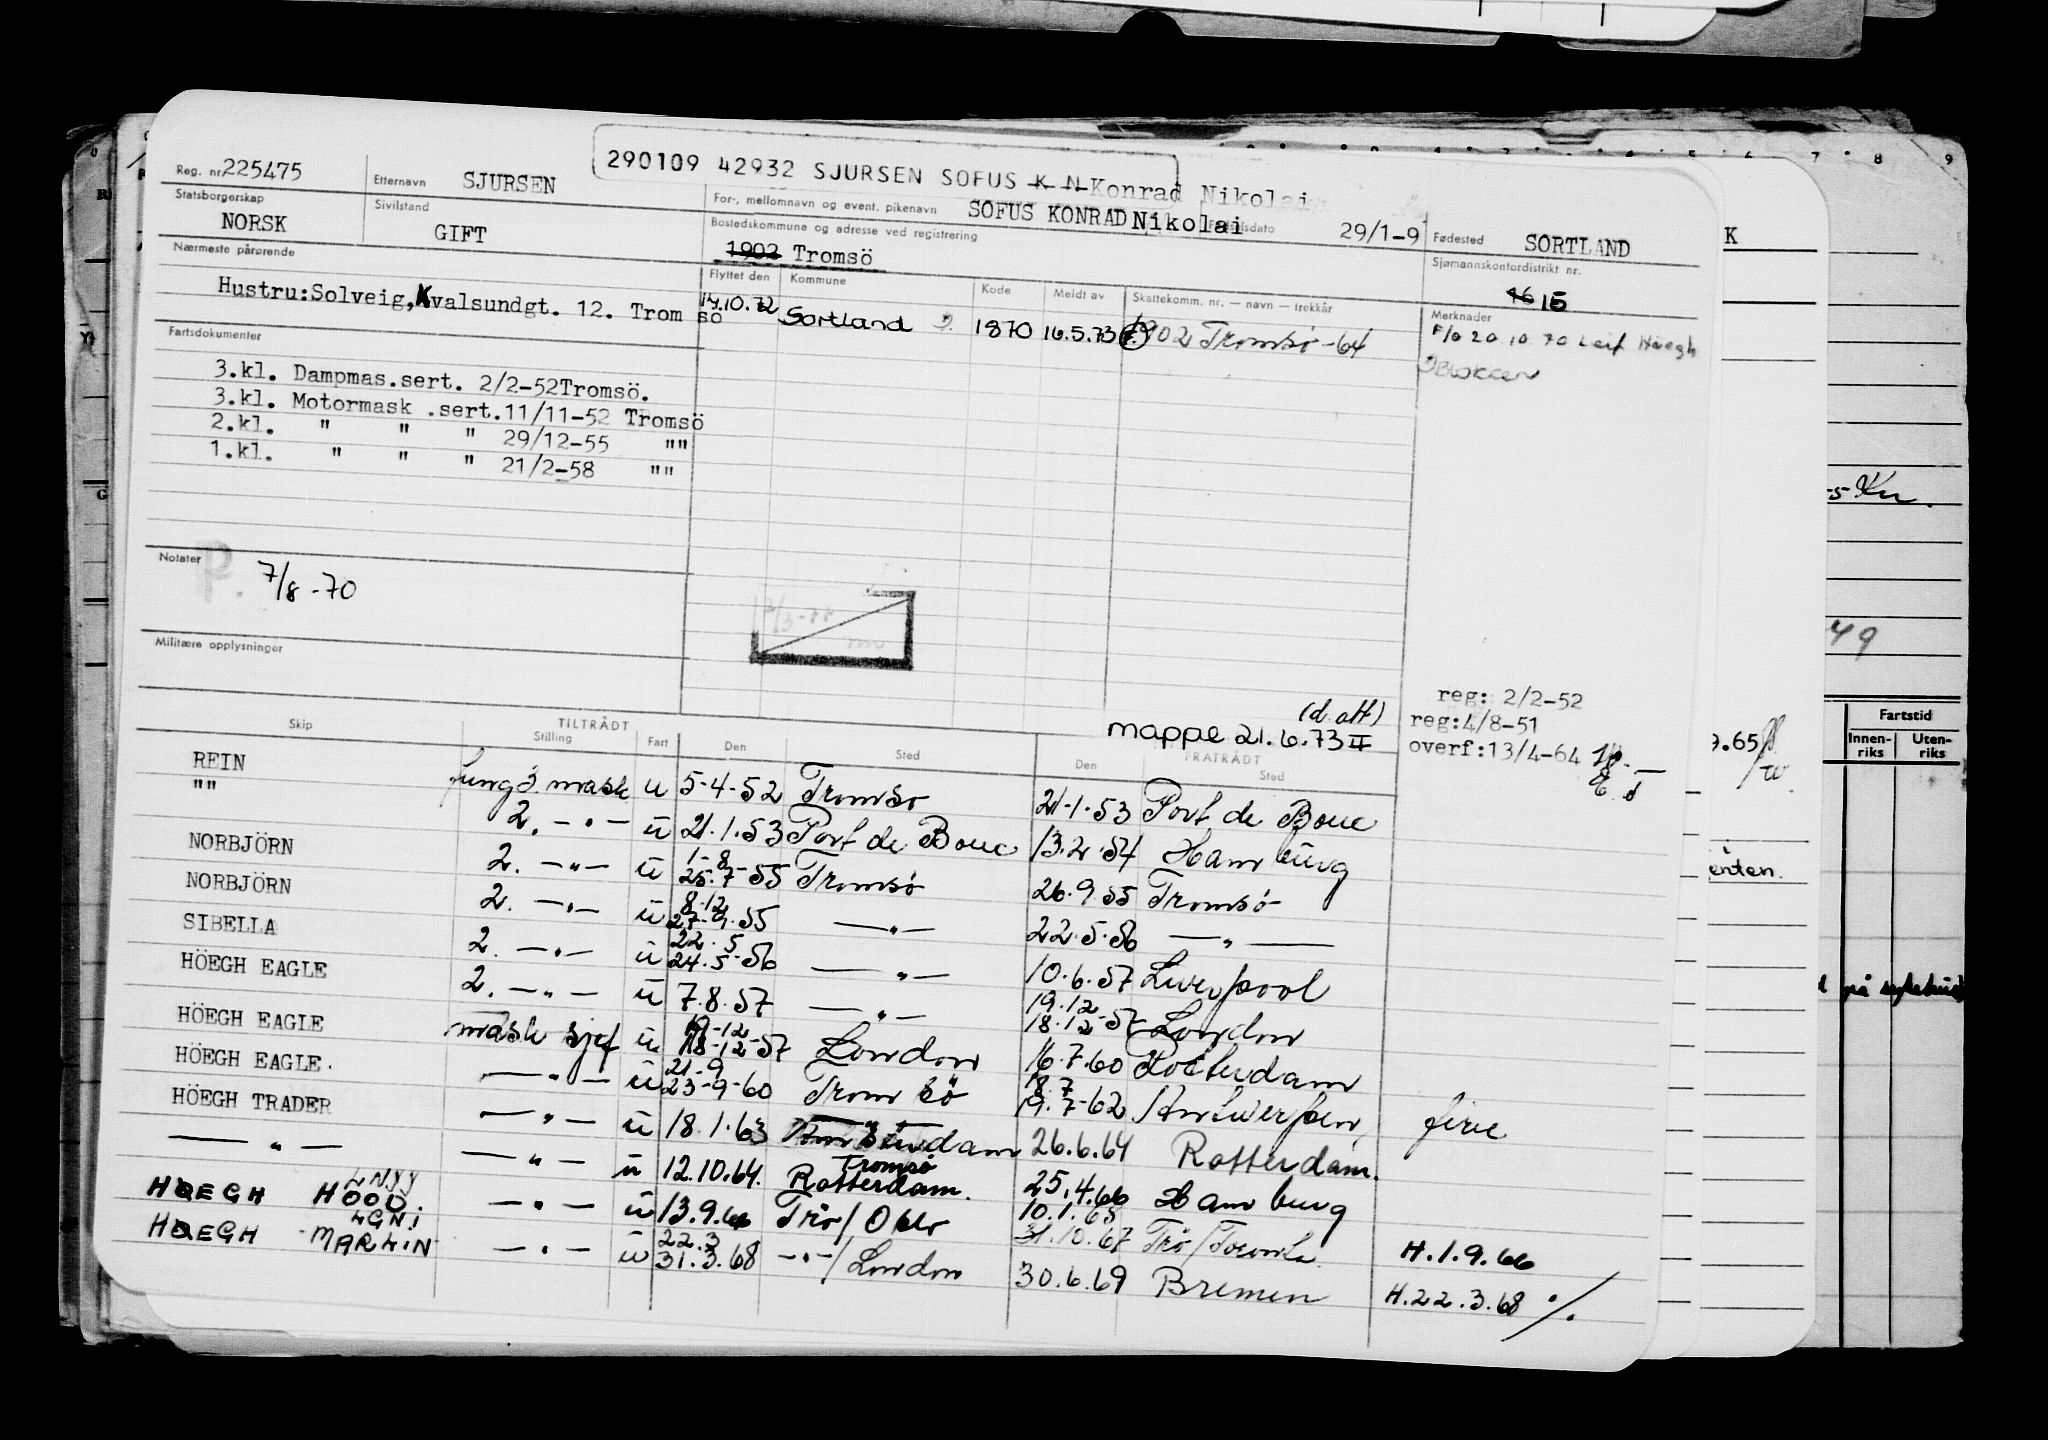 290109 42932 SJURSEN SOFUS K N Konrad Nikolai
Reg. nr. 225475 Etternavn SJURSEN For-, mellomnavn og event. pikenavn SOFUS KONRAD Nikolai Fødselsdato 29/1-9 Fødested SORTLAND
Statsborgerskap NORSK Sivilstand GIFT Bostedskommune og adresse ved registrering 1902 Tromsö Sjømannskontordistrikt nr. 16 15
Nærmeste pårørende Flyttet den Kommune Kode Meldt av Skattekomm. nr. — navn — trekkår Merknader
Hustru: Solveig, Kvalsundgt. 12. Trom sö 14.10.72 Sortland 1870 16.5.73 1902 Tromsø -64 F/o 20.10.70 Leif Höegh
Blokken
Fartsdokumenter
3.kl. Dampmas.sert. 2/2-52Tromsö.
3.kl. Motormask .sert.11/11-52 Tromsö
2.kl. " " " 29/12-55 ""
1.kl. " " " 21/2-58 ""
Notater P. 7/8-70
Militære opplysninger
reg: 2/2-52
(d. att)
mappe 21.6.73 II reg:4/8-51
overf:13/4-64
TILTRÅDT FRATRÅDT
Skip Stilling Fart Den Sted Den Sted
REIN fung 3 mask u 5-4-52 Tromsø 21-1-53 Port de Bouc
"" 2. —"— u 21.1.53 Port de Bouc 13.2.54 Hamburg
NORBJÖRN 2. —"— u 1-8 25.7-55 Tromsø 26.9.55 Tromsø
NORBJÖRN 2. —"— u 8-12 27-9.55 —"— 22.5.56 —"—
SIBELLA 2. —"— u 22.5 24.5-56 —"— 10.6.57 Liverpool
HÖEGH EAGLE 2. —"— u 7.8.57 —"— 19.12 18.12-57 London
HÖEGH EAGLE mask sjef u 19-12 18-12-57 London 16.7.60 Rotterdam
HÖEGH EAGLE. —"— u 21-9 23-9-60 Tromsö 18.7 19.7-62 Antwerpen ferie
HÖEGH TRADER —"— u 18.1.63 Amsterdam 26.6.64 Rotterdam.
—"— —"— u 12.10.64. Tromsø Rotterdam. 25.4.66 Hamburg
10.1.65
LNYY
HØEGH HOOD. —"— u 13.9.66 Trö/Oslo 31.10.67 Trö/ H.1.9.66
LGNI
HØEGH MARLIN —"— u 22.3 31.3.68 —"—/London 30.6.69 Bremen H.22.3.68 ./.
K
-5-
49
9.65
Fartstid
Innen-riks Uten-riks
enten.
på sykehus